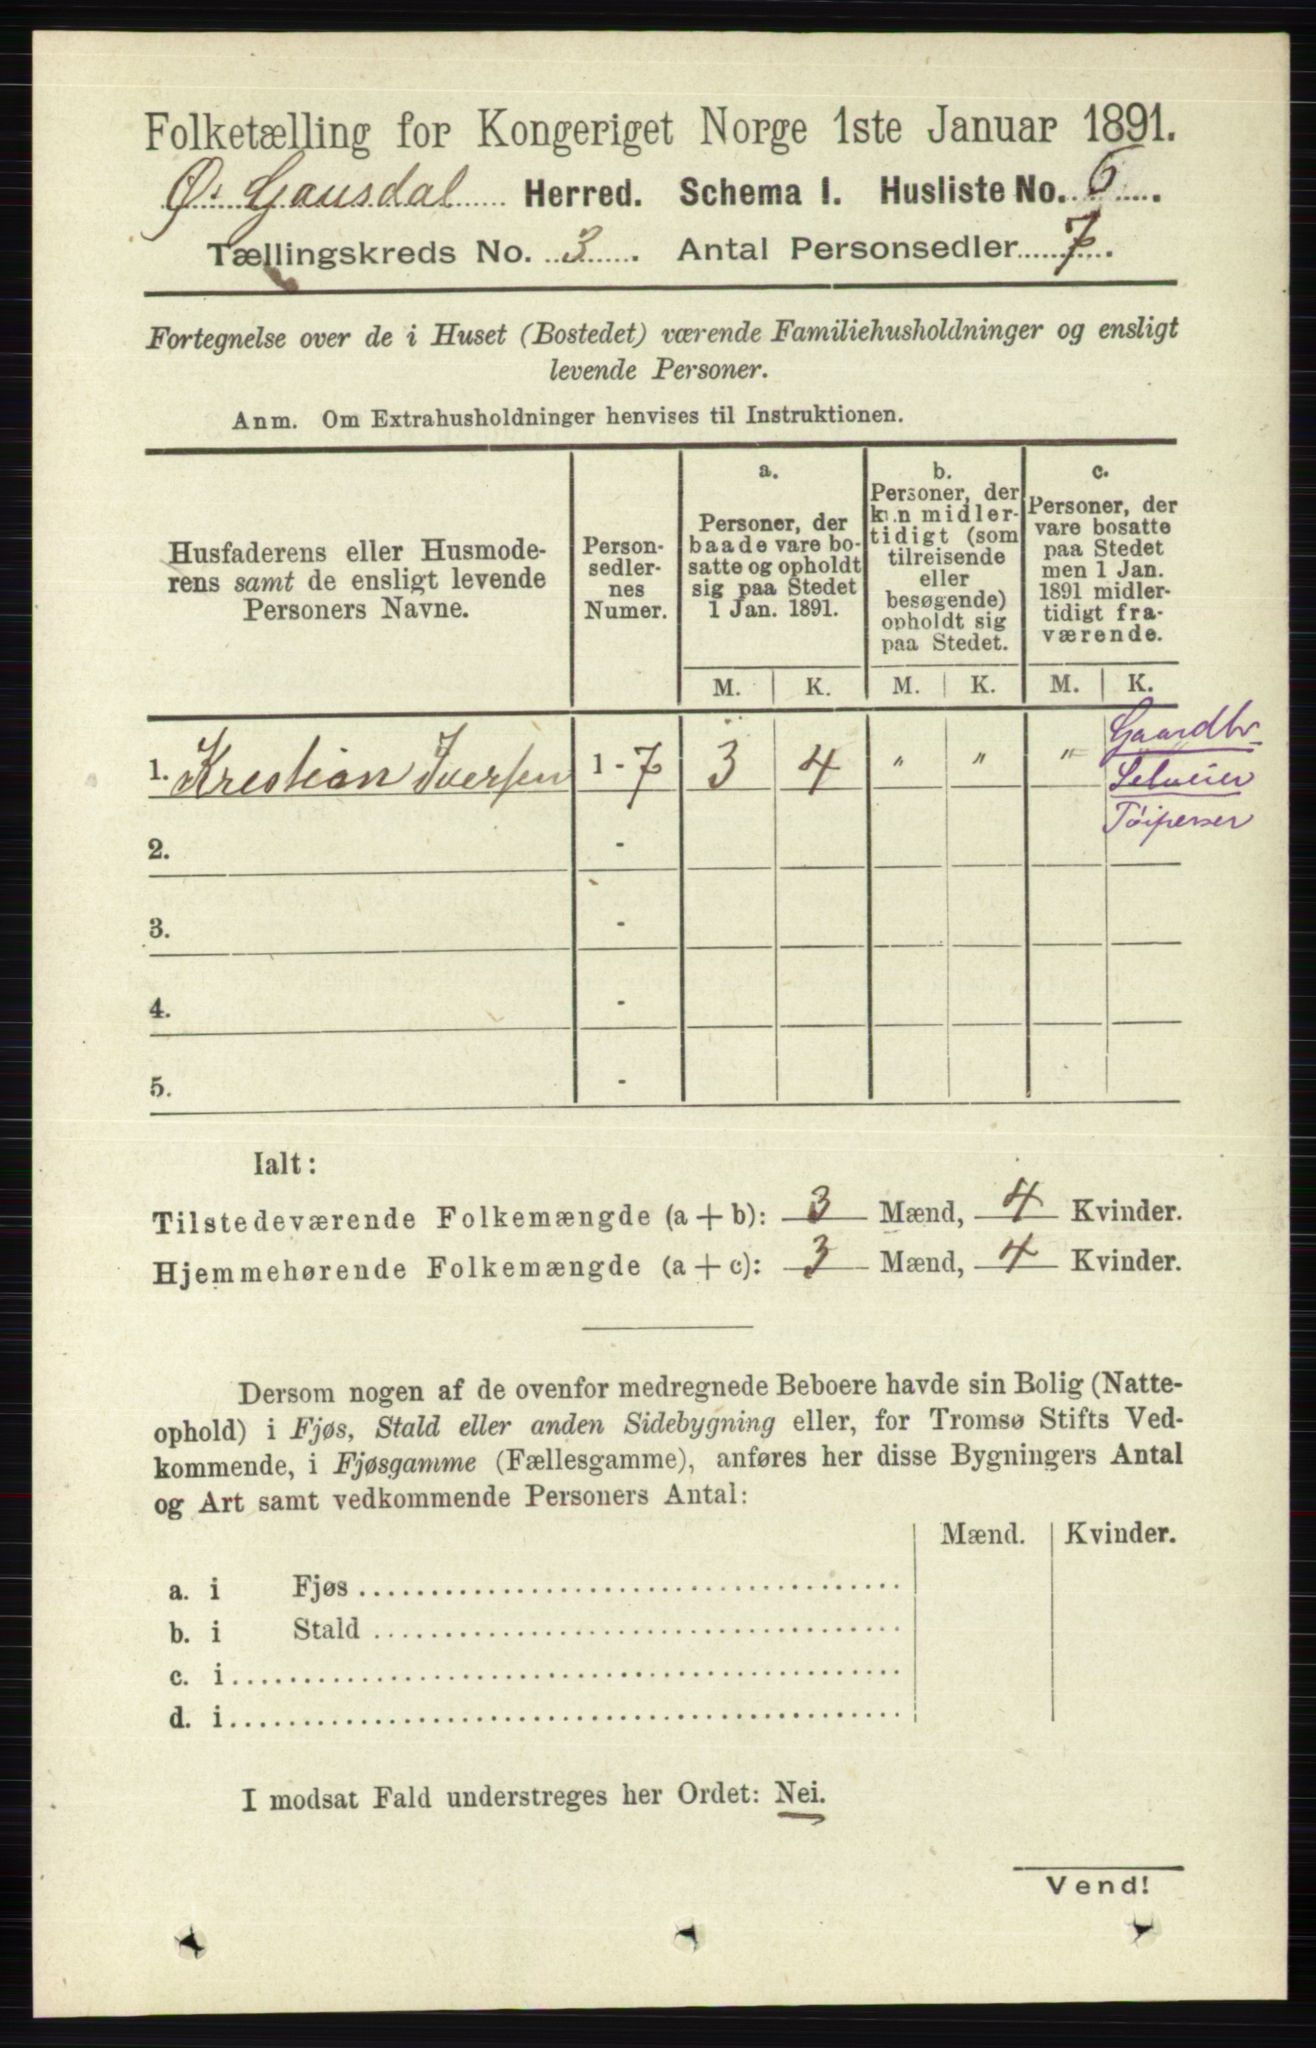 Folketælling for Kongeriget Norge 1ste Januar 1891.
Ø. Gausdal Herred. Schema I. Husliste No. 6.
Tællingskreds No. 3. Antal Personsedler 7.
Fortegnelse over de i Huset (Bostedet) værende Familiehusholdninger og ensligt
levende Personer.
Anm. Om Extrahusholdninger henvises til Instruktionen.
Husfaderens eller Husmode-
rens samt de ensligt levende
Personers Navne.
Person-
sedler-
nes
Numer.
a.
Personer, der
baade vare bo-
satte og opholdt
sig paa Stedet
1 Jan. 1891.
b.
Personer, der
kun midler-
tidigt (som
tilreisende
eller
besøgende)
opholdt sig
paa Stedet.
c.
Personer, der
vare bosatte
paa Stedet
men 1 Jan.
1891 midler-
tidigt fra-
værende.
M. K. M. K. M. K.
1. Krestian Iversen 1 - 7 3 4 " " "
Gaardbr
Selveier
Tøipresser
2. -
3. -
4. -
5. -
Ialt:
Tilstedeværende Folkemængde (a + b): 3 Mænd, 4 Kvinder.
Hjemmehørende Folkemængde (a + c): 3 Mænd, 4 Kvinder.
Dersom nogen af de ovenfor medregnede Beboere havde sin Bolig (Natte-
ophold) i Fjøs, Stald eller anden Sidebygning eller, for Tromsø Stifts Ved-
kommende, i Fjøsgamme (Fællesgamme), anføres her disse Bygningers Antal
og Art samt vedkommende Personers Antal:
Mænd. Kvinder.
a. i Fjøs
b. i Stald
c. i
d. i
I modsat Fald understreges her Ordet: Nei.
Vend!